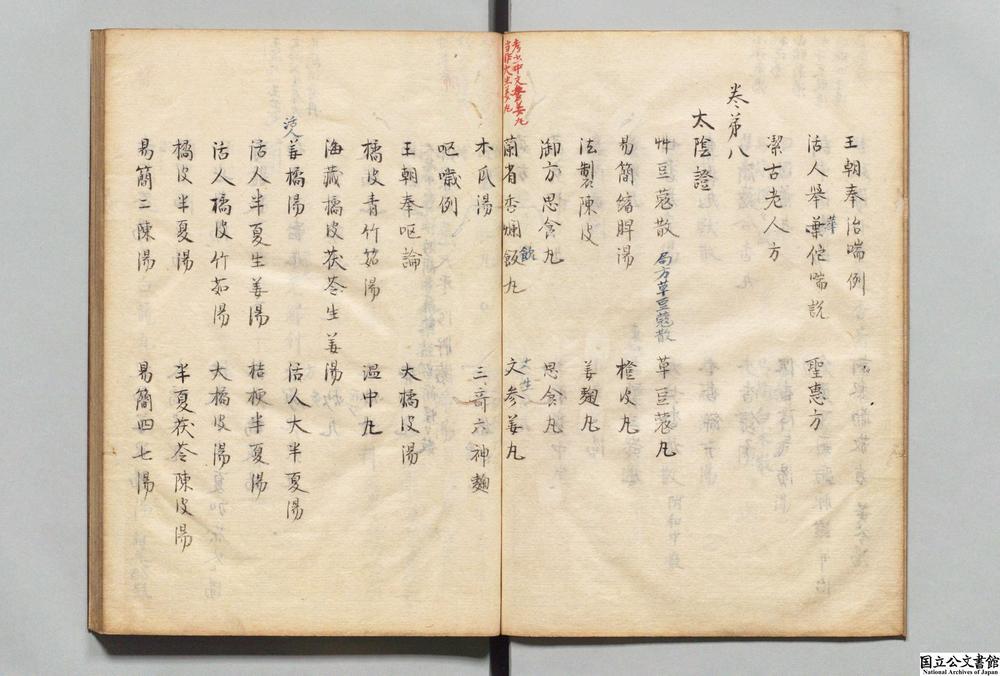 王朝奉治喘例
活人举華佗喘説　聖惠方
潔古老人方
卷第八
太陰證
艸豆蔻散　局方草豆蔻散　草豆蔻丸
易簡縮脾湯　橙皮丸
法製陳皮　姜麴丸
御方思食丸　思食丸
蘭省香爛飯丸　飲　文参姜丸
木瓜湯　三奇六神麯
呕噦例
王朝奉呕論　大橘皮湯
橘皮青竹茹湯　温中丸
海藏橘皮茯苓生姜湯
活人姜橘湯　活人大半夏湯
活人半夏生姜湯　桔梗半夏湯
活人橘皮竹茹湯　大橘皮湯
橘皮半夏湯　半夏茯苓陳皮湯
易簡二陳湯　易簡四七湯
国立公文書館
National Archives of Japan